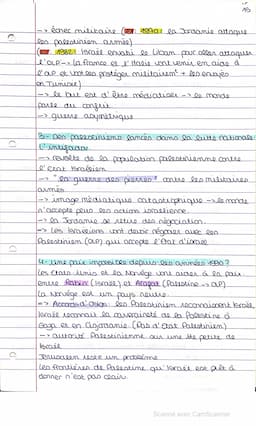 → échec militaire (1970 la Jordanie attaque
les palestinien armés)
(1982 Israël envahi le Liban pour aller attaquer
l'OLP → la France et l'Italie vont venir en aide à
l'OLP et vont les protéger militairemt + les envoyés
en Tunisie)
→ le but est d'être médiatisés → le monde
parle du conflit
→ guerre asymétrique
3- Des palestiniens lancés dans la lutte nationale
l'intifada
→ révolte de la population palestinienne contre
l'Etat Israélien
→ "la guerre des pierres" contre les militaires
armés
→ image médiatique catastrophique → le monde
n'accepte plus les action israélienne.
→ la Jordanie se retire des négociation.
→ les Israéliens vont devoir négocier avec les
Palestinien (OLP) qui accepte l'Etat d'Israël
4- Une paix impossible depuis les années 1990?
Les Etats-Unis et la Norvège vont aider à la paix
entre Rabin (Israël) et Arafat (Palestine → OLP)
La Norvège est un pays neutre.
→ Accords d'Oslo: les Palestinien reconnaissent Israël
Israël reconnaît la souveraineté de la Palestine à
Gaza et en Cisjordanie. (Pas d'Etat Palestinien)
→ autorité Palestinienne sur une tte petite de
Israël
Jerusalem reste un problème
Les frontières de Palestine qu'Israël est prêt à
donner n'est pas clair.
Scanned with CamScanner